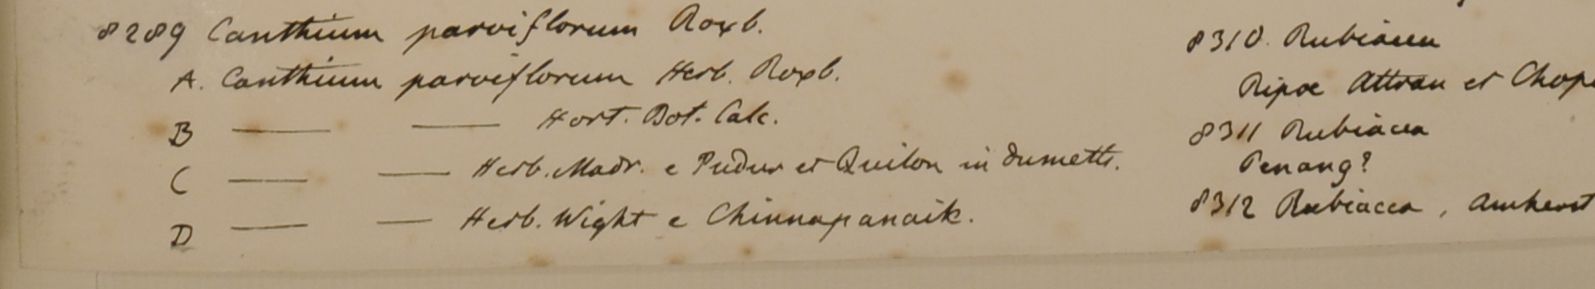 8289 Canthium parviflorum Roxb.
A. Canthium parviflorum Herb. Roxb.
B —— —— Hort. Bot. Calc.
C —— —— Herb. Madr. e Pudur et Quilon in dumetis.
D —— —— Herb. Wight e Chinnapanaik.
8310. Rubiacea
Ripae Attran et Chap
8311 Rubiacea
Penang?
8312 Rubiacea, Amherst